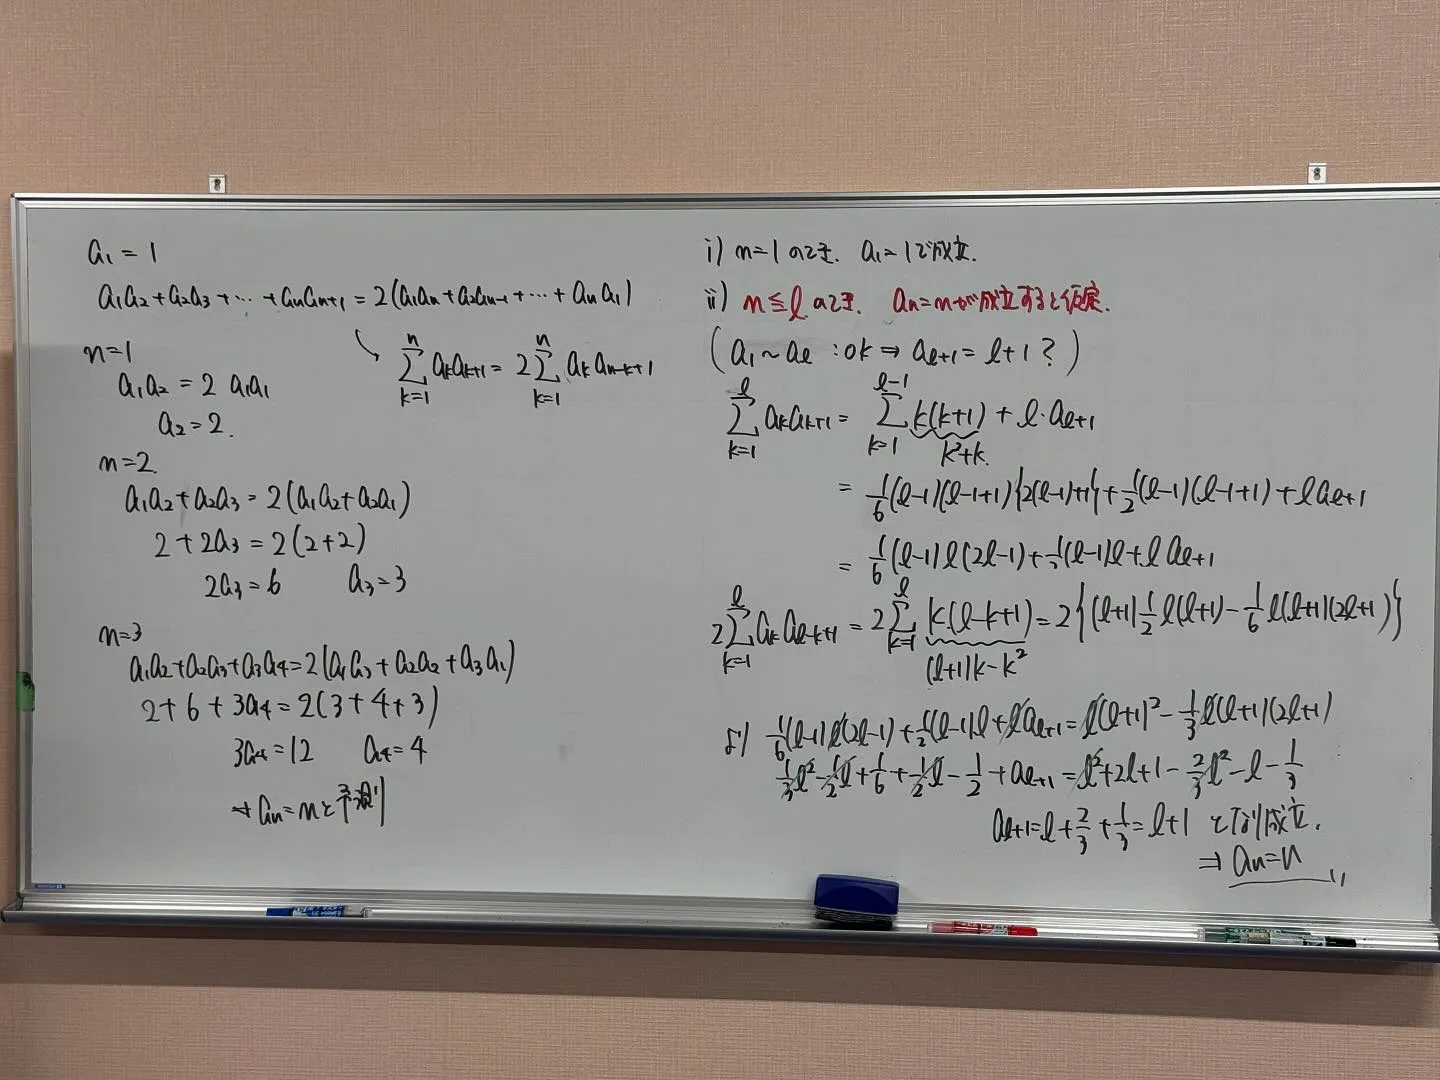 a₁ = 1
a₁a₂+a₂a₃+⋯+aₙaₙ₊₁=2(a₁aₙ+a₂aₙ₋₁+⋯+aₙa₁)
∑_{k=1}^{n} aₖaₖ₊₁=2∑_{k=1}^{n} aₖaₙ₋ₖ₊₁
n=1
a₁a₂=2 a₁a₁
a₂=2.
n=2
a₁a₂+a₂a₃=2(a₁a₂+a₂a₁)
2+2a₃=2(2+2)
2a₃=6 a₃=3
n=3
a₁a₂+a₂a₃+a₃a₄=2(a₁a₃+a₂a₂+a₃a₁)
2+6+3a₄=2(3+4+3)
3a₄=12 a₄=4
→ aₙ=nと予測
i) n=1のとき. a₁=1で成立.
ii) n≦ℓのとき. aₙ=nが成立すると仮定.
(a₁~a_ℓ:ok⇒a_{ℓ+1}=ℓ+1?)
∑_{k=1}^{ℓ} aₖaₖ₊₁=∑_{k=1}^{ℓ-1} k(k+1)+ℓ·a_{ℓ+1}
k²+k.
=1/6(ℓ-1)(ℓ-1+1){2(ℓ-1)+1}+1/2(ℓ-1)(ℓ-1+1)+ℓa_{ℓ+1}
=1/6(ℓ-1)ℓ(2ℓ-1)+1/2(ℓ-1)ℓ+ℓa_{ℓ+1}
2∑_{k=1}^{ℓ} aₖa_{ℓ-k+1}=2∑_{k=1}^{ℓ} k(ℓ-k+1)=2{(ℓ+1)1/2ℓ(ℓ+1)-1/6ℓ(ℓ+1)(2ℓ+1)}
(ℓ+1)k-k²
より 1/6(ℓ-1)ℓ(2ℓ-1)+1/2(ℓ-1)ℓ+ℓa_{ℓ+1}=ℓ(ℓ+1)²-1/3ℓ(ℓ+1)(2ℓ+1)
1/3ℓ²-1/2ℓ+1/6+1/2ℓ-1/2+a_{ℓ+1}=ℓ²+2ℓ+1-2/3ℓ²-ℓ-1/3
a_{ℓ+1}=ℓ+2/3+1/3=ℓ+1 となり成立.
⇒ aₙ=n